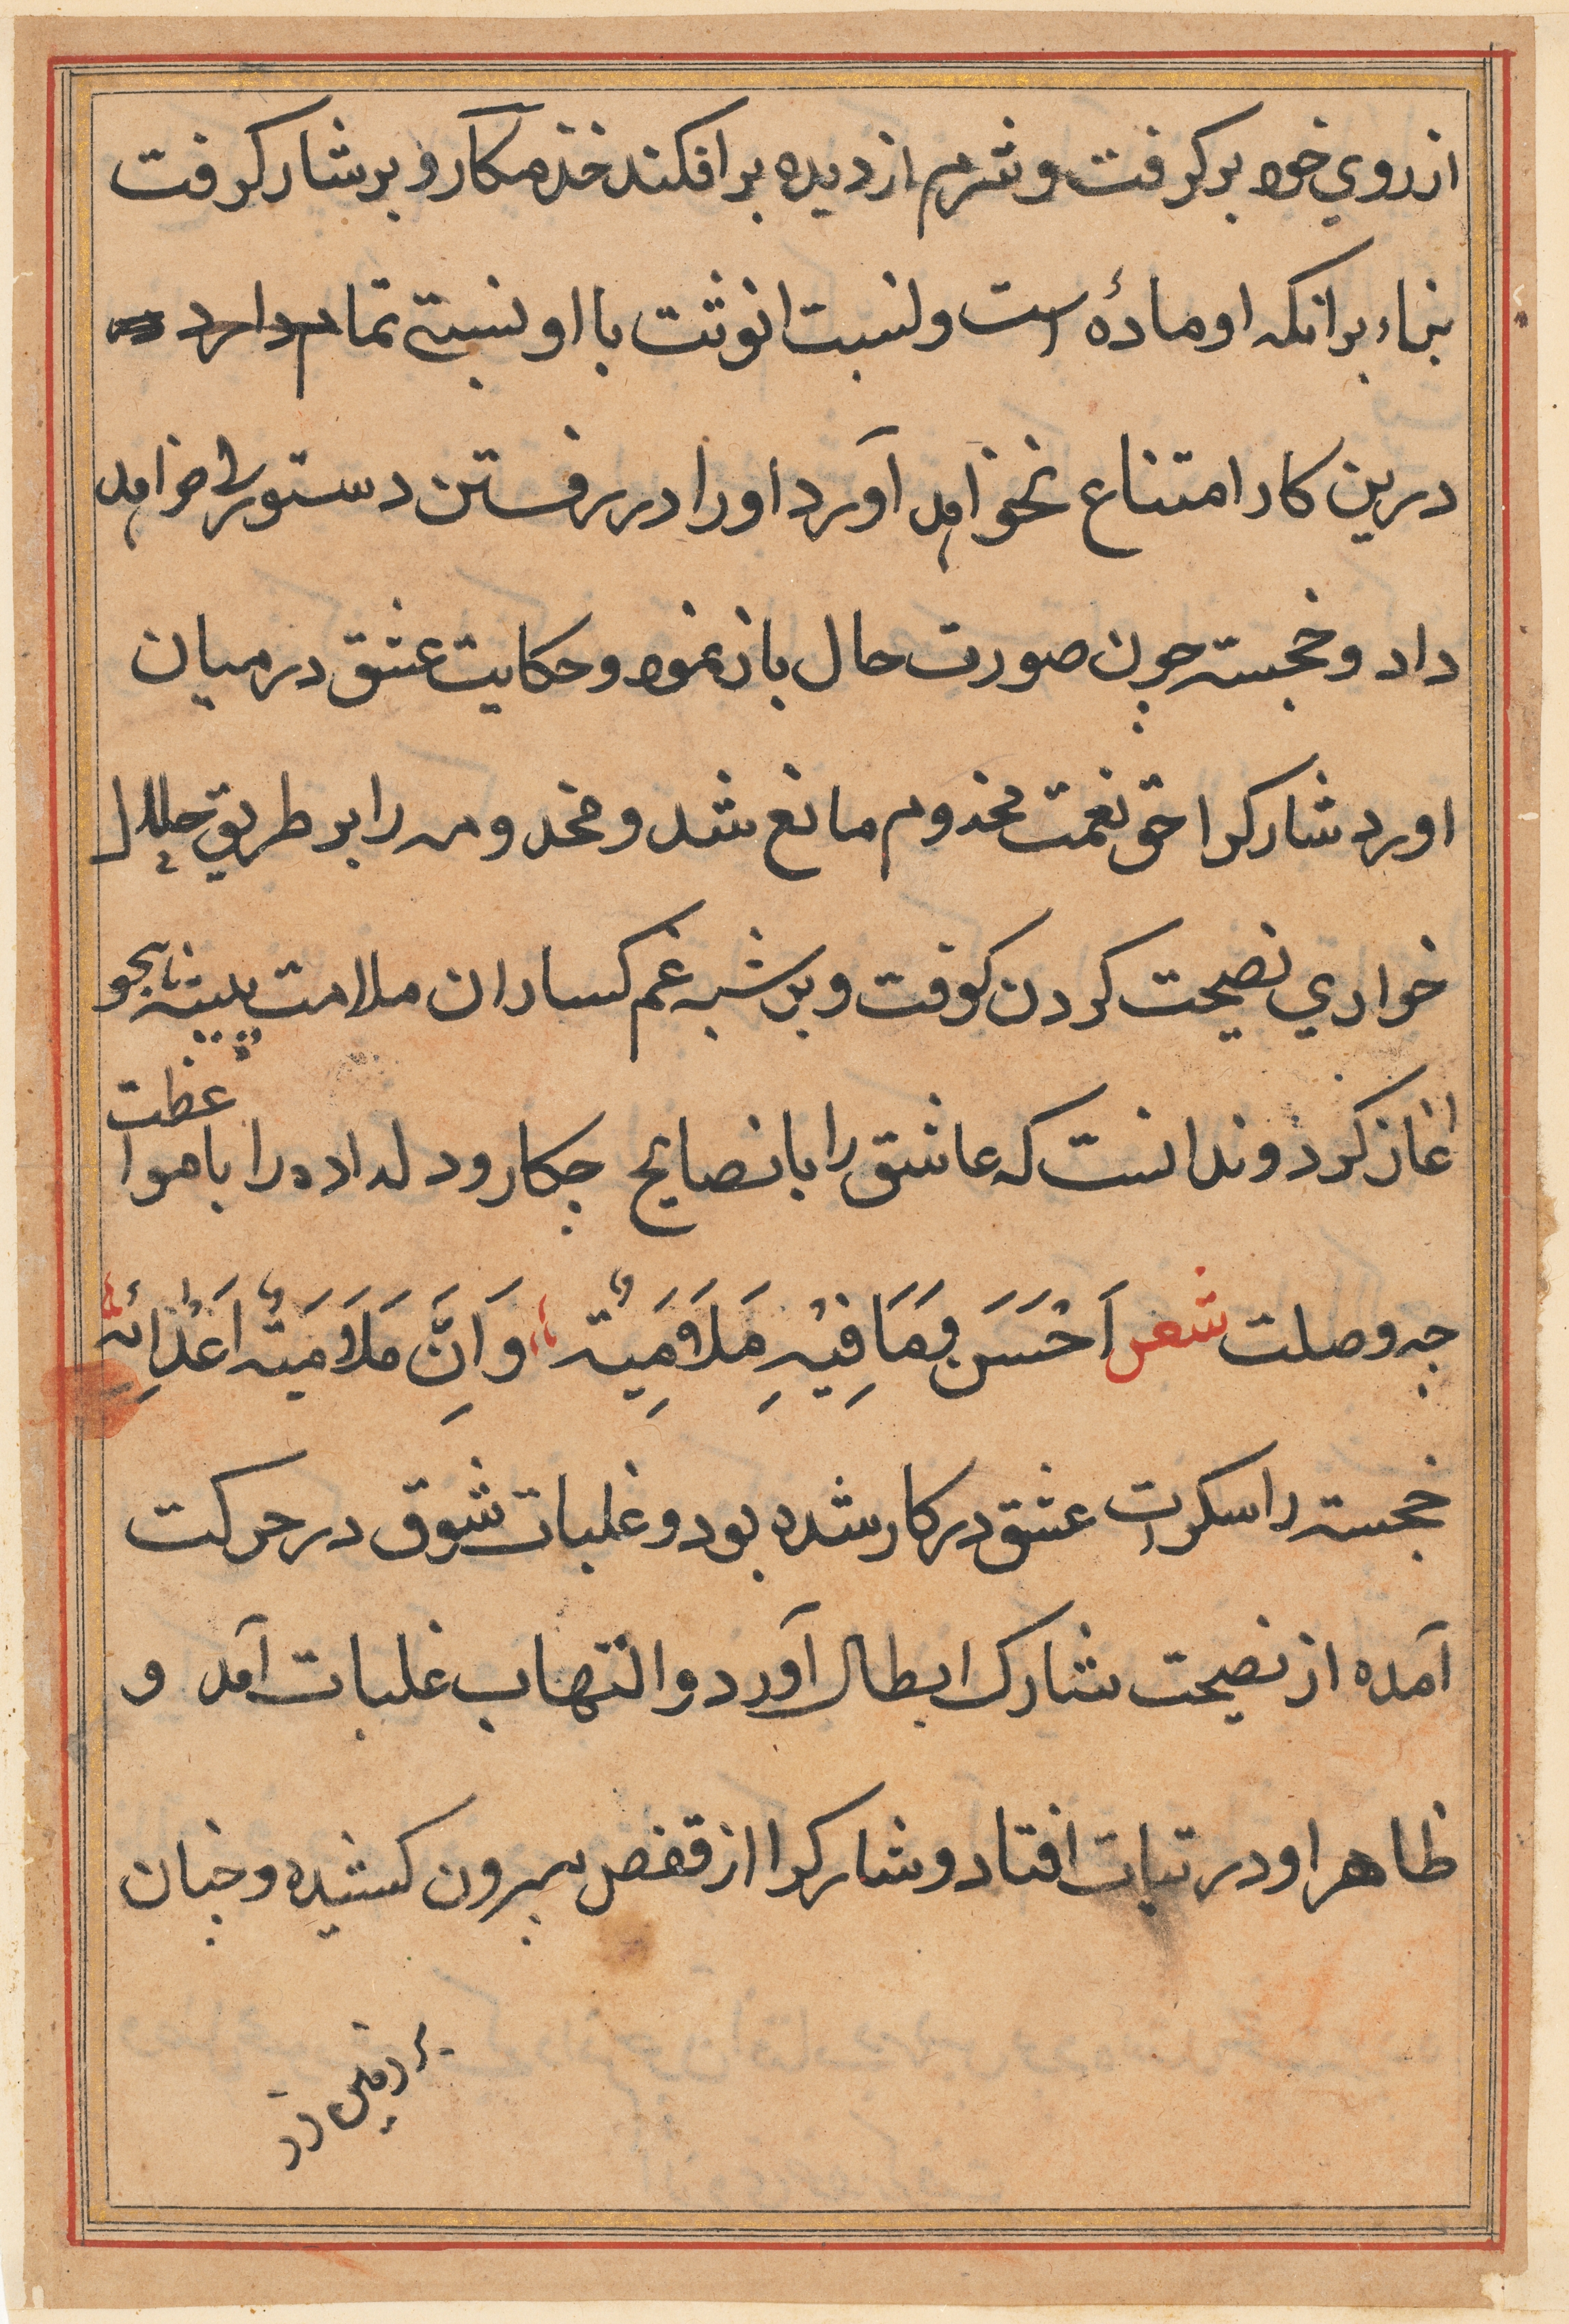 از روي خود بر كرفت و شرم از ديده بر افكند خذمكار و بر شارك رفت
بناء بر انكه او مادهٔ است و لنسبت انوثت با او نسبتے تمام دارد
درين كار امتناع نخواهد آورد او را در رفستن دستوري خواهد
داد و خجسته چون صورت حال باز نمود و حكايت عشق در ميان
اورد شارك را حق نعمت مخدوم مانع شد و مخدومه را بر طريق حلال
خواري نصيحت كردن كوفت و بر شبه غم كساران ملامت
اغاز كرد و ندانست كه عاشق را با نصايح چكار و دلداده را با مواعظت
چه وصلت شعر اَحْسَن فِيْهِ مَلَامِيَته وَاَنَّ مَلَامَيتهٔ اَعْدَائه
خجسته را سكرات عشق در كار شده بود و غلبات شوق در حركت
آمده از نصيحت شارك ابطال آورد و التهاب غلبات آمد و
ظاهر او در تبات افتاد و شارك را از قفص بيرون كشيده و چنان
بر زمين زد